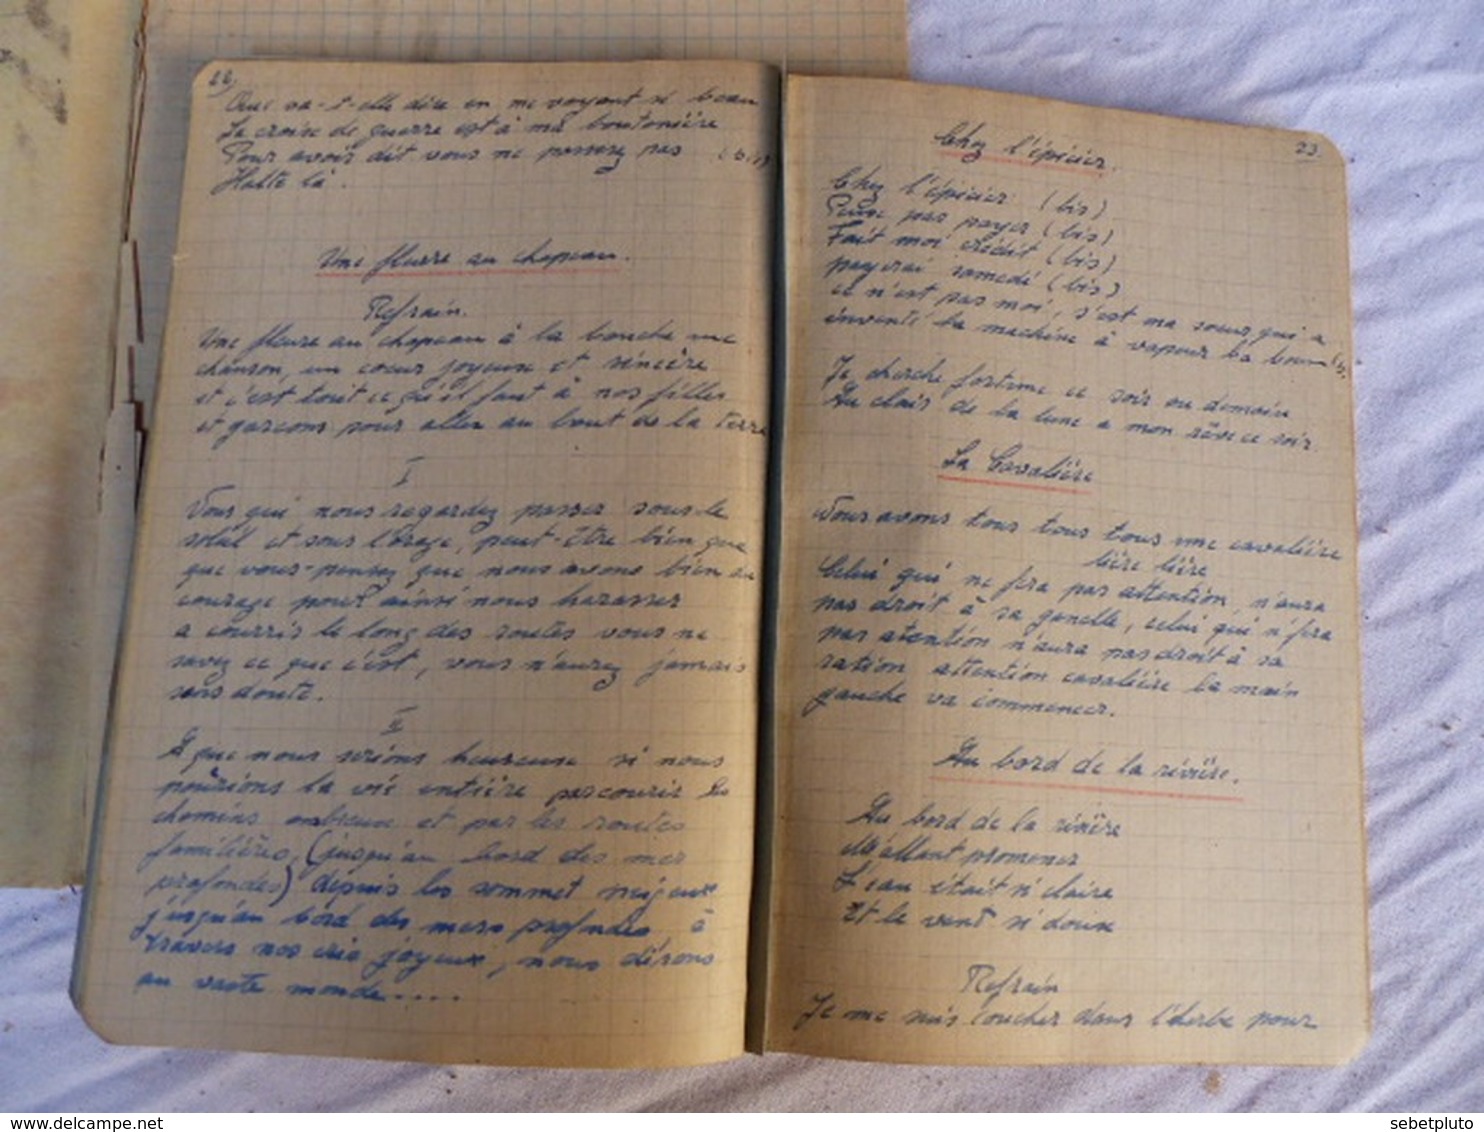 22)
Que va-t-elle dire en me voyant si beau
La croix de guerre est à ma boutonière
Pour avoir dit vous ne passerez pas (bis)
Halte là.
Une fleure au chapeau.
Refrain.
Une fleure au chapeau à la bouche une
chanson, un coeur joyeuse et sincère
et c'est tout ce qu'il faut à nos filles
et garçons pour aller au bout de la terre
I
Vous qui nous regardez passer sous le
soleil et sous l'orage, peut-être bien que
que vous-pensez que nous avons bien du
courage pour ainsi nous harasser
a courrir le long des routes vous ne
savez ce que c'est, vous n'aurez jamais
sans doute.
II
A que nous serions heureuse si nous
pourrions la vie entière parcourir les
chemins ombreux et par les routes
familières, (jusqu'au bord des mer
profondes) depuis les sommet neijeux
jusqu'au bord des mers profondes, à
travers nos cris joyeux, nous dirons
au vaste monde....
23.
Chez l'épicier.
Chez l'épicier (bis)
Peuse pas payer (bis)
Fait moi crédit (bis)
payerai samedi (bis)
ce n'est pas moi, s'est ma soeur qui a
inventé la machine à vapeur ba boum
Je cherche fortune ce soir ou demain
Au clair de la lune a mon rêve ce soir
La Cavalière
Nous avons tous tous tous une cavalière
lière lière
Celui qui ne fera pas attention, n'aura
pas droit à sa gamelle, celui qui n'fera
pas attention n'aura pas droit à sa
ration attention cavalière la main
gauche va commencer.
Au bord de la rivière.
Au bord de la rivière
M'allant promener
L'eau était si claire
Et le vent si doux
Refrain
Je me suis coucher dans l'herbe pour
www.delcampe.net
sebetpluto